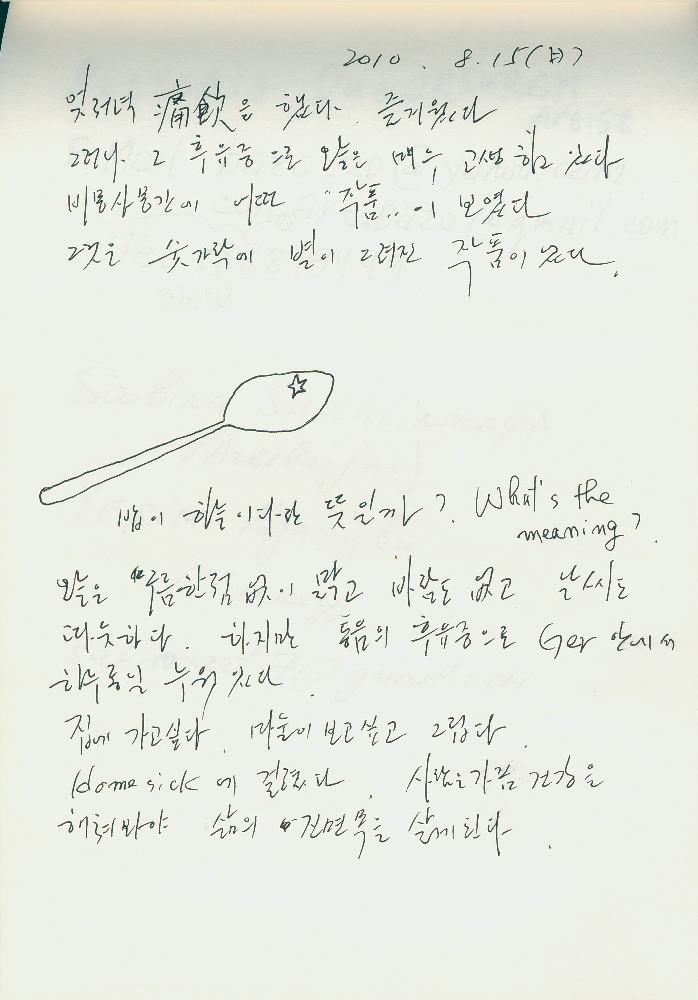 2010. 8.15(日)
엊저녁 痛飮을 했다. 즐거웠다
그러나 그 후유증으로 오늘은 매우 고생하고 있다
비몽사몽간에 어떤 "작품"이 보였다
그것은 숫가락에 별이 그려진 작품이었다.
밥이 하늘이다란 뜻일까? What's the
meaning?
오늘은 구름한점 없이 맑고 바람도 없고 날씨도
따뜻하다. 하지만 통음의 후유증으로 Ger 안에서
하루종일 누워 있다.
집에 가고싶다. 마눌이 보고싶고 그립다.
Homesick에 걸렸다. 사람은 가끔 건강을
해쳐봐야 삶의 진면목을 알게된다.